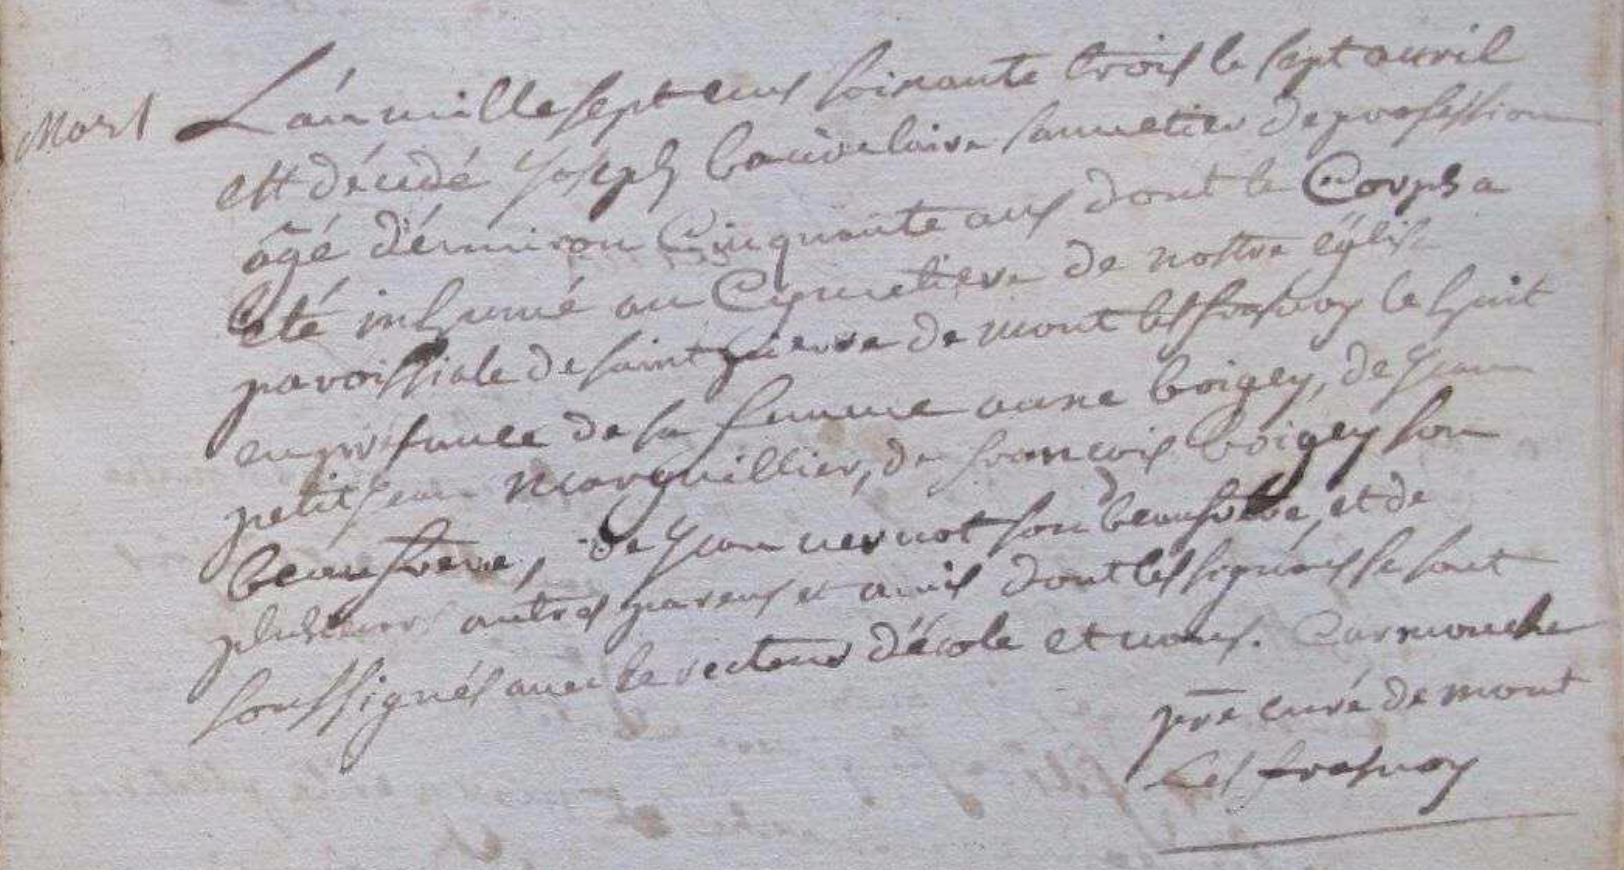 Mort
L'an mille sept cens soixante trois le sept avril
est décédé joseph bauvelaire saunetier de profession
âgé d'énuiron Cinquante ans dont le Corps a
été inhumé au Cymetiere de nostre églis
paroissiale de saint pierre de mont les fresnoy le huit
en presence de sa femme anne boigey, de jean
petitjean marguillier, de francois boigey son
beaufrere, de jean vernot son beaufrere, et de
plusieurs autres parens et amis dont les signés se sont
soussignés avec le recteur d'école et nous. Carmouche
pre curé de mont
Les fresnoy